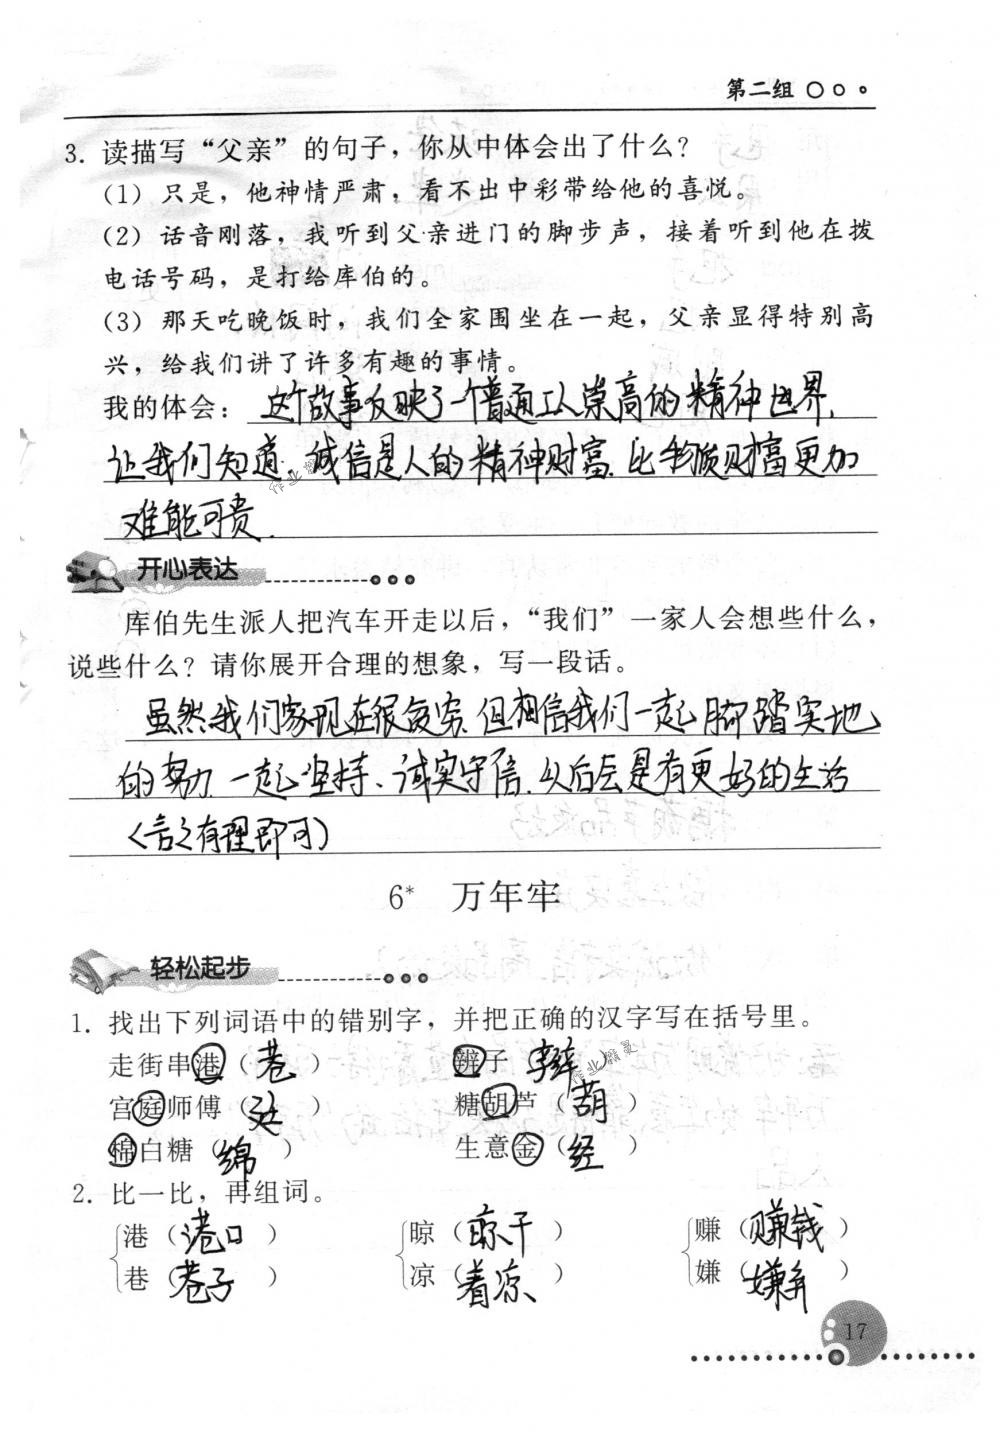 第二组
3. 读描写“父亲”的句子，你从中体会出了什么？
(1) 只是，他神情严肃，看不出中彩带给他的喜悦。
(2) 话音刚落，我听到父亲进门的脚步声，接着听到他在拨
电话号码，是打给库伯的。
(3) 那天吃晚饭时，我们全家围坐在一起，父亲显得特别高
兴，给我们讲了许多有趣的事情。
我的体会： 这个故事反映了一个普通工人崇高的精神世界，
让我们知道，诚信是人的精神财富，比物质财富更加
难能可贵.
作业精灵
开心表达
库伯先生派人把汽车开走以后，“我们”一家人会想些什么，
说些什么？请你展开合理的想象，写一段话。
虽然我们家现在很贫穷,但相信我们一起脚踏实地
的努力,一起坚持、诚实守信,以后会是有更好的生活
(言之有理即可)
6* 万年牢
轻松起步
1. 找出下列词语中的错别字，并把正确的汉字写在括号里。
走街串港（巷） 辨子（辫）
作业精灵
宫庭师傅（廷） 糖胡芦（葫）
棉白糖（绵） 生意金（经）
2. 比一比，再组词。
港（港口） 晾（晾干） 赚（赚钱）
巷（巷子） 凉（着凉） 嫌（嫌弃）
17